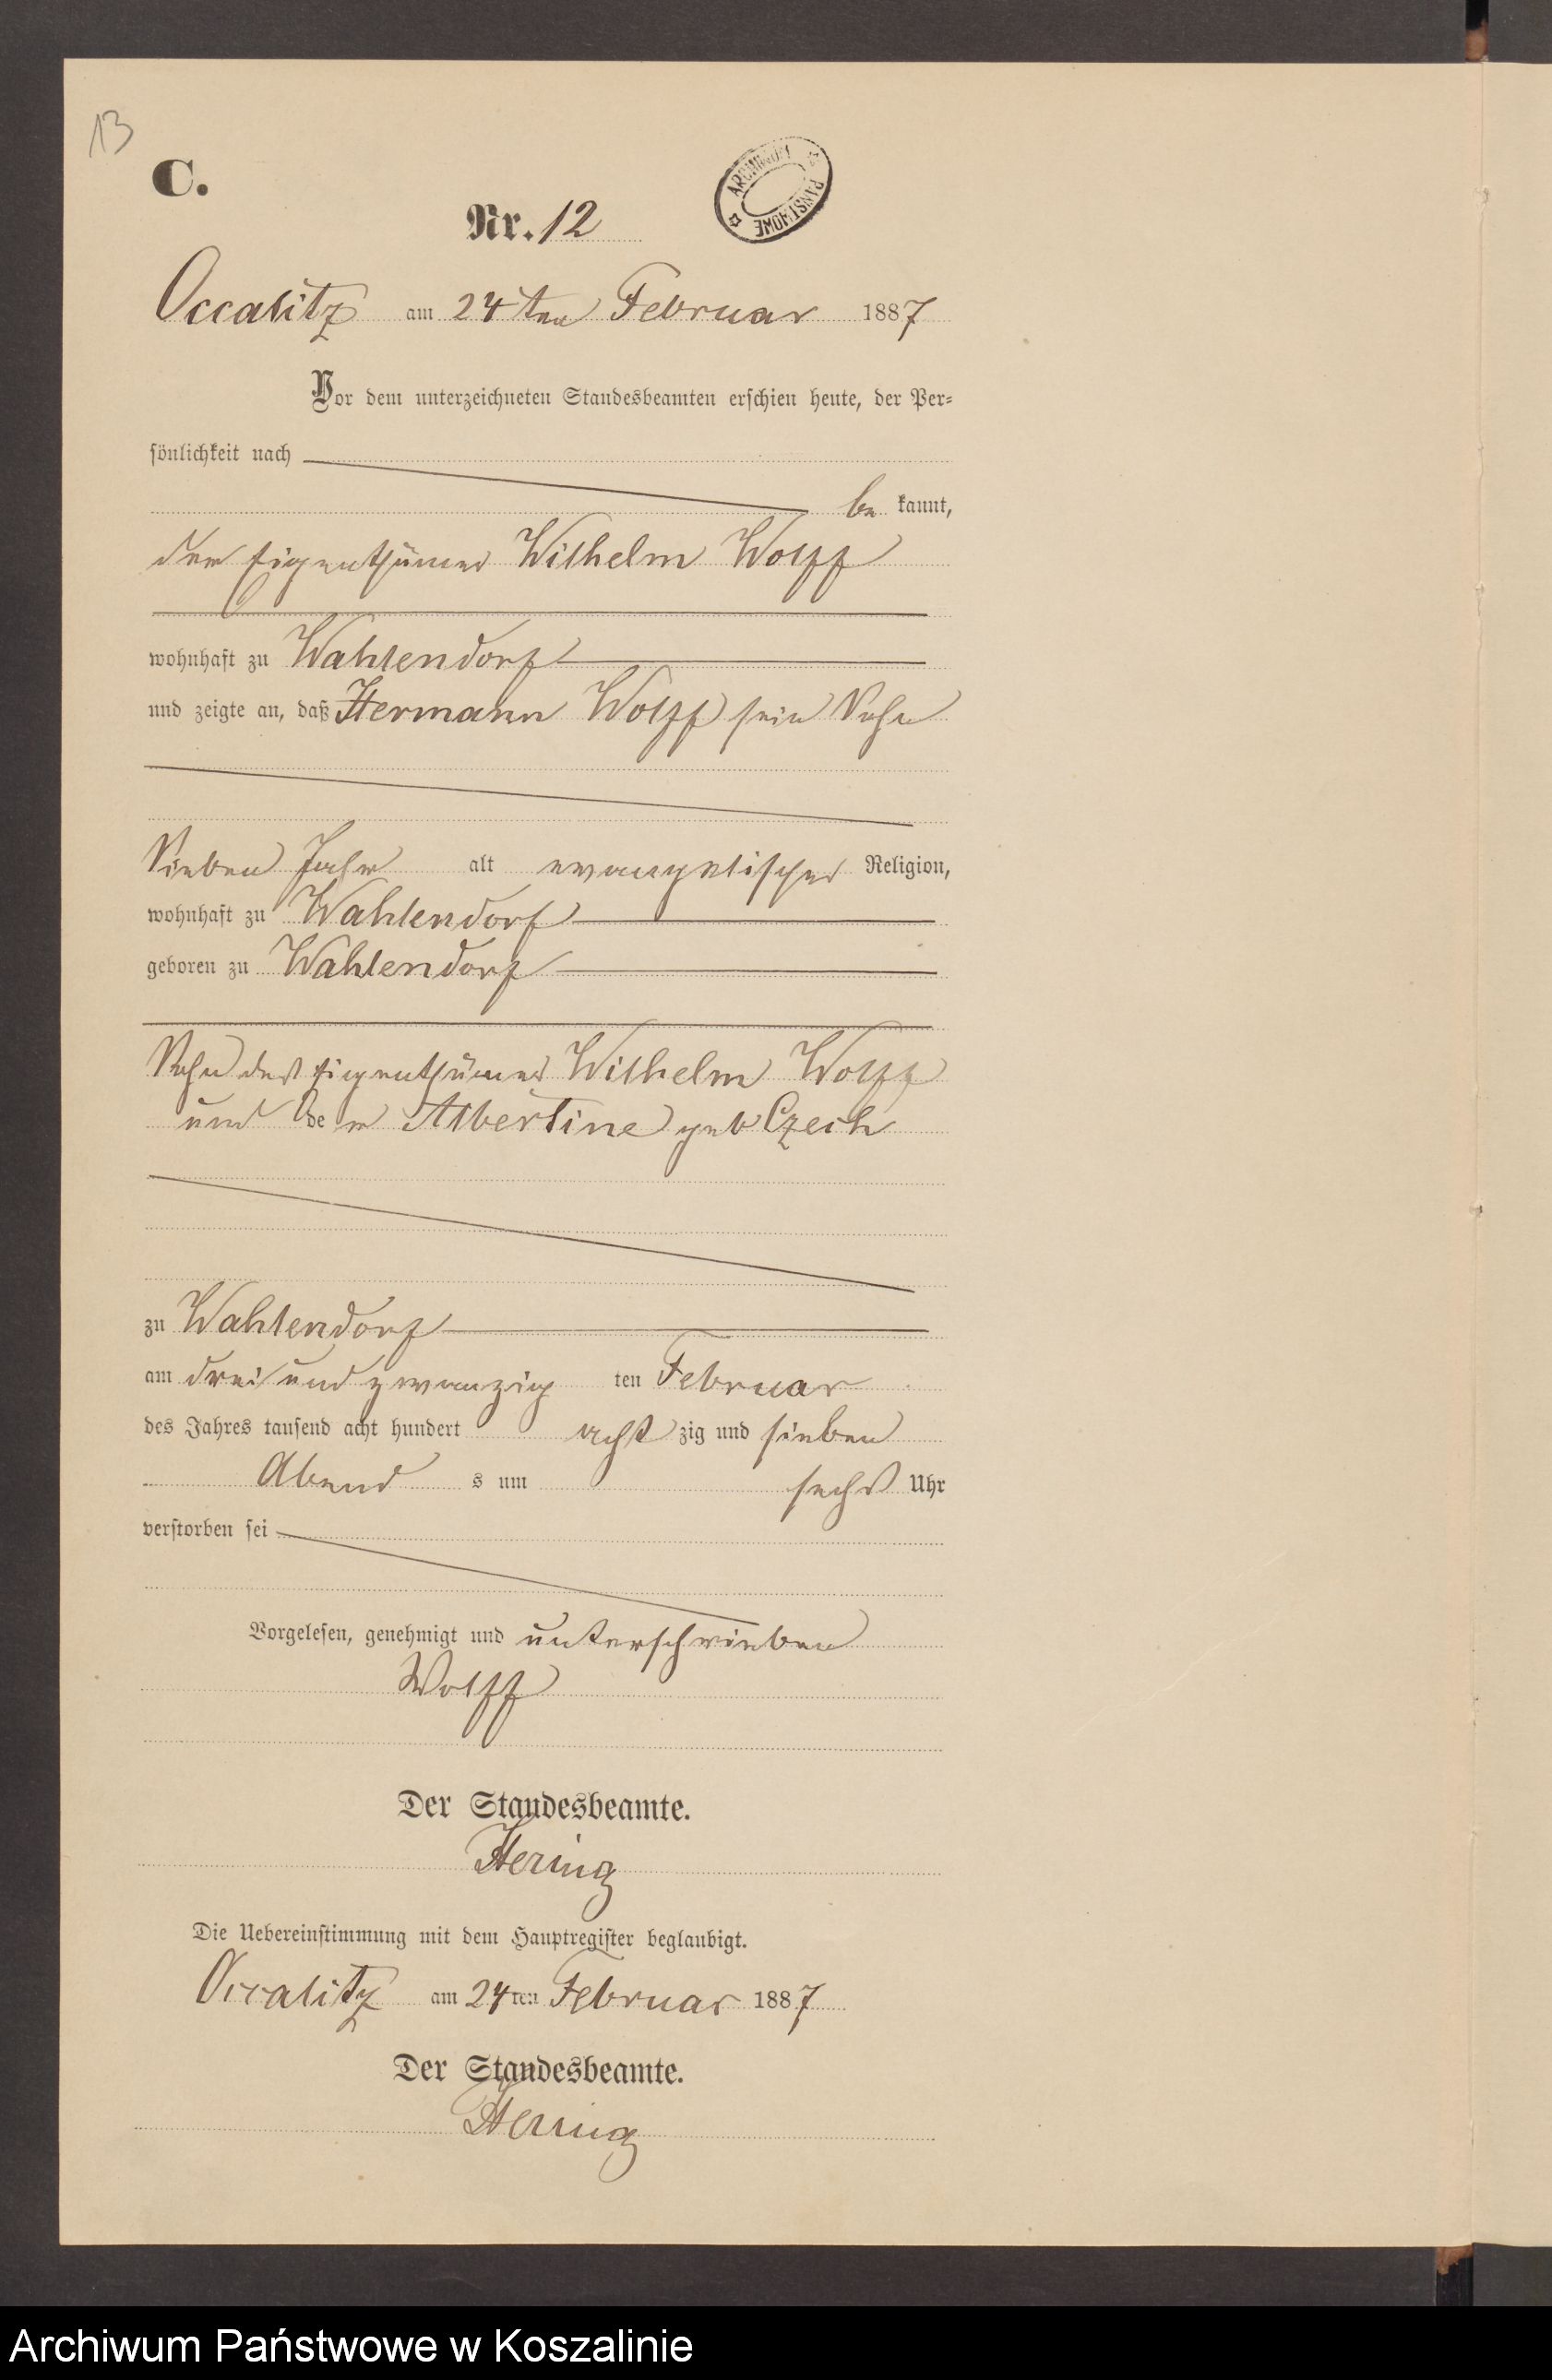 13
C.
Nr. 12
ARCHIWUM PAŃSTWOWE
Occalitz am 24ten Februar 1887
Vor dem unterzeichneten Standesbeamten erschien heute, der Per-
sönlichkeit nach
be kannt,
der Eigenthümer Wilhelm Wolff
wohnhaft zu Wahlendorf
und zeigte an, daß Hermann Wolff sein Sohn
Sieben Jahr alt evangelischer Religion,
wohnhaft zu Wahlendorf
geboren zu Wahlendorf
Sohn des Eigenthümer Wilhelm Wolff
und der Albertine geb Czech
zu Wahlendorf
am drei und zwanzig ten Februar
des Jahres tausend acht hundert acht zig und sieben
Abend s um sechs Uhr
verstorben sei
Vorgelesen, genehmigt und unterschrieben
Wolff
Der Standesbeamte.
Hering
Die Uebereinstimmung mit dem Hauptregister beglaubigt.
Occalitz am 24ten Februar 1887
Der Standesbeamte.
Hering
Archiwum Państwowe w Koszalinie